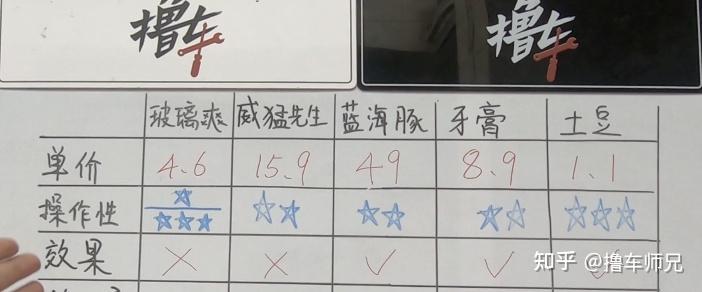 撸车
撸车
玻璃爽 威猛先生 蓝海豚 牙膏 土豆
单价 4.6 15.9 49 8.9 1.1
操作性 ☆/☆☆☆ ☆☆ ☆☆ ☆☆ ☆☆☆
效果 × × ✓ ✓ ✓
知乎 @撸车师兄